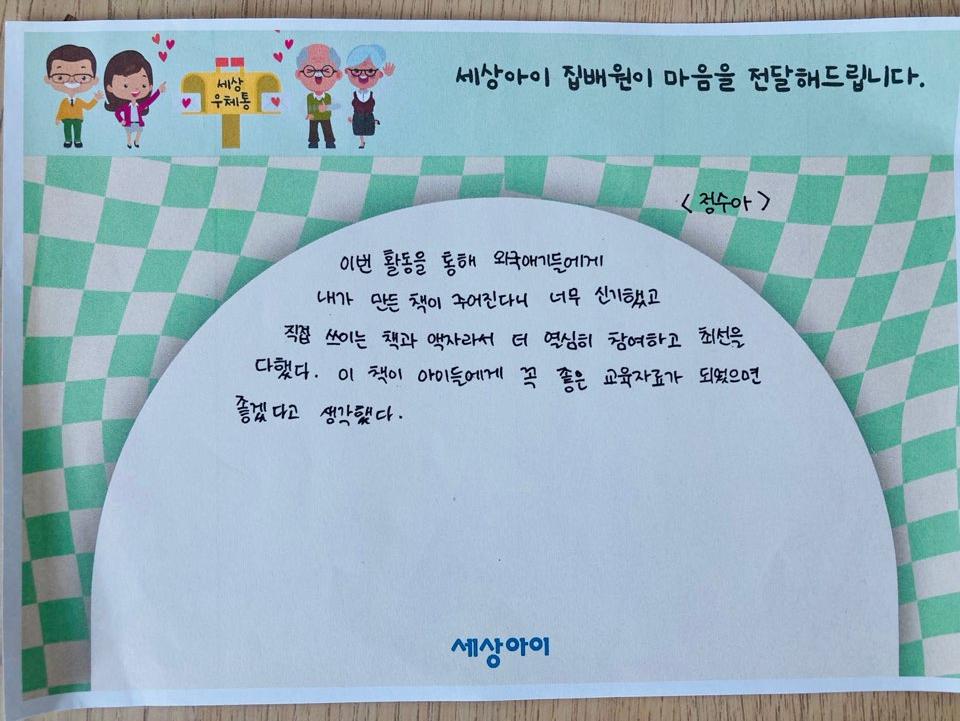 세상
우체통
세상아이 집배원이 마음을 전달해드립니다.
<정수아>
이번 활동을 통해 외국애기들에게
내가 만든 책이 주어진다니 너무 신기했고
직접 쓰이는 책과 액자라서 더 열심히 참여하고 최선을
다했다. 이 책이 아이들에게 꼭 좋은 교육자료가 되었으면
좋겠다고 생각했다.
세상아이